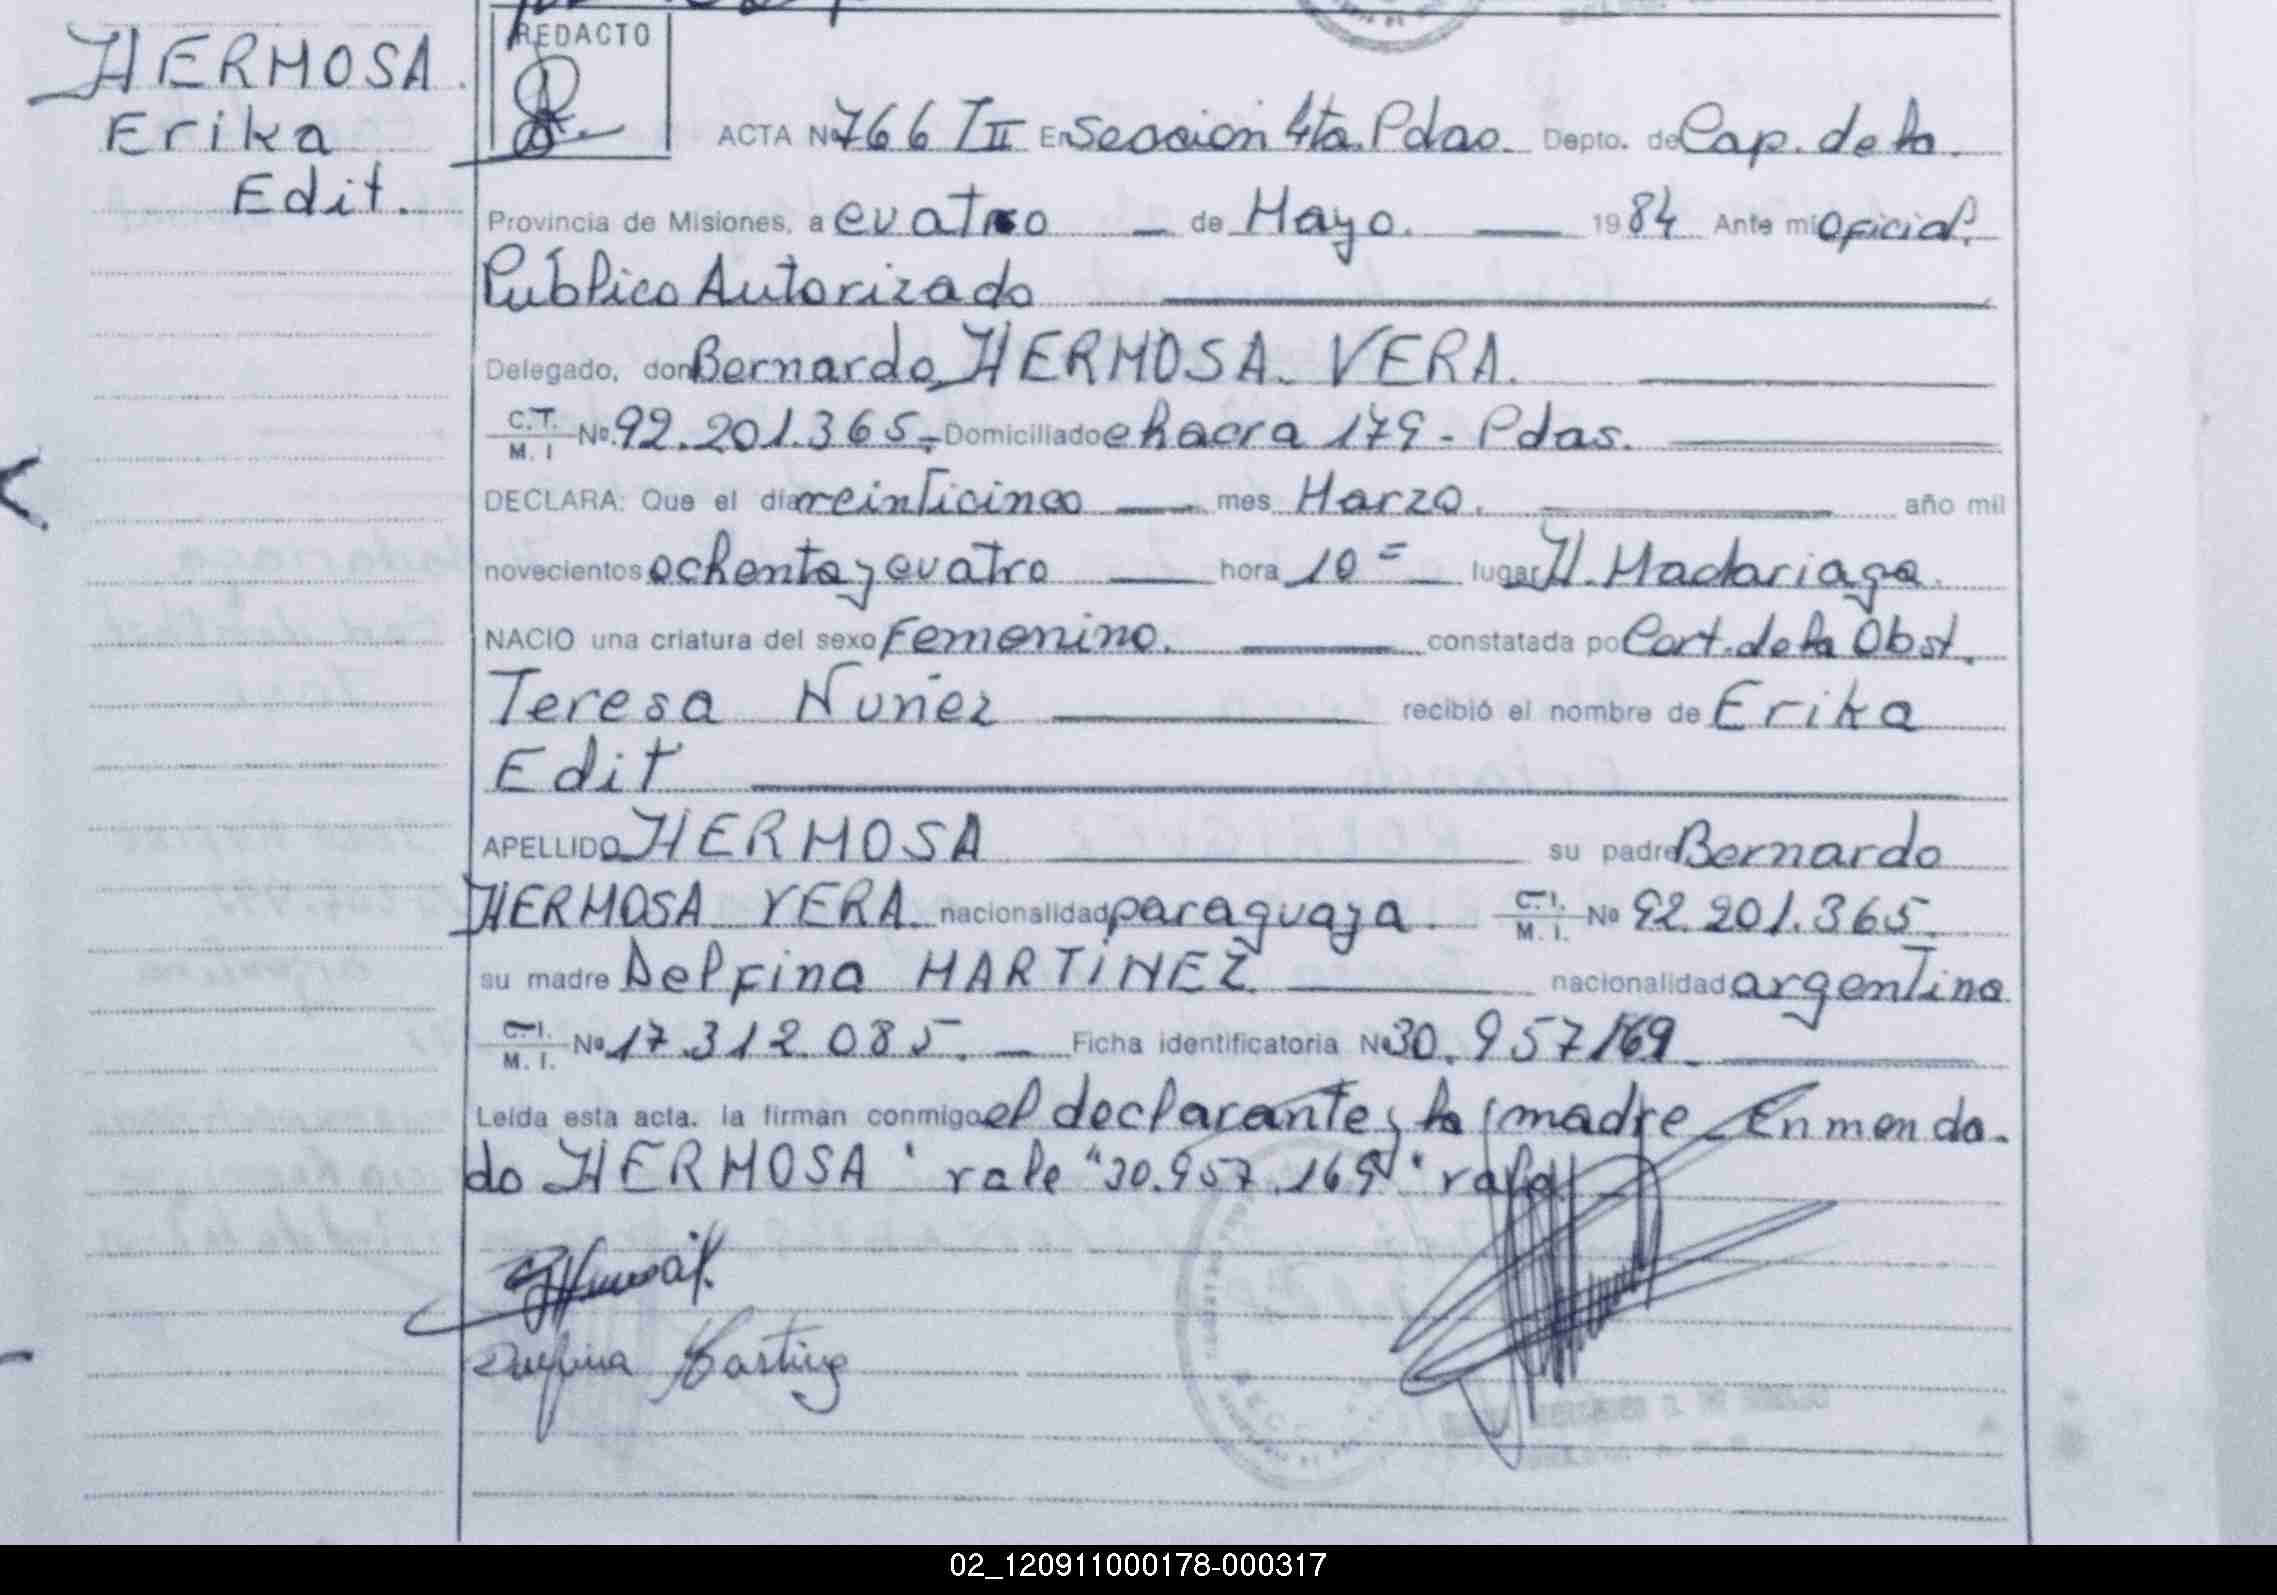 HERMOSA
Erika
Edit.
REDACTO
ACTA Nº 766 T II En Sección 4ta. Pdas. Depto. de Cap. de la
Provincia de Misiones, a cuatro — de Mayo. — 1984 Ante mi Oficial
Público Autorizado
Delegado, don Bernardo HERMOSA VERA.
C.I.
M. I Nº 92.201.365.- Domiciliado chacra 179 - Pdas.
DECLARA: Que el día veinticinco — mes Marzo. año mil
novecientos ochenta y cuatro — hora 10 = lugar H. Madariaga.
NACIO una criatura del sexo Femenino. constatada po Cert. de la Obst.
Teresa Nuñez recibió el nombre de Erika
Edit
APELLIDO HERMOSA su padre Bernardo
HERMOSA VERA. nacionalidad paraguaya. C.I.
M. I. Nº 92.201.365.
su madre Delfina MARTINEZ nacionalidad argentina
C.I.
M. I. Nº 17.312.085. — Ficha identificatoria Nº 30.957169.
Leida esta acta. la firman conmigo el declarante y la madre - Enmenda-
do HERMOSA " vale "30.957.169" vale
Delfina Martinez
02_120911000178-000317